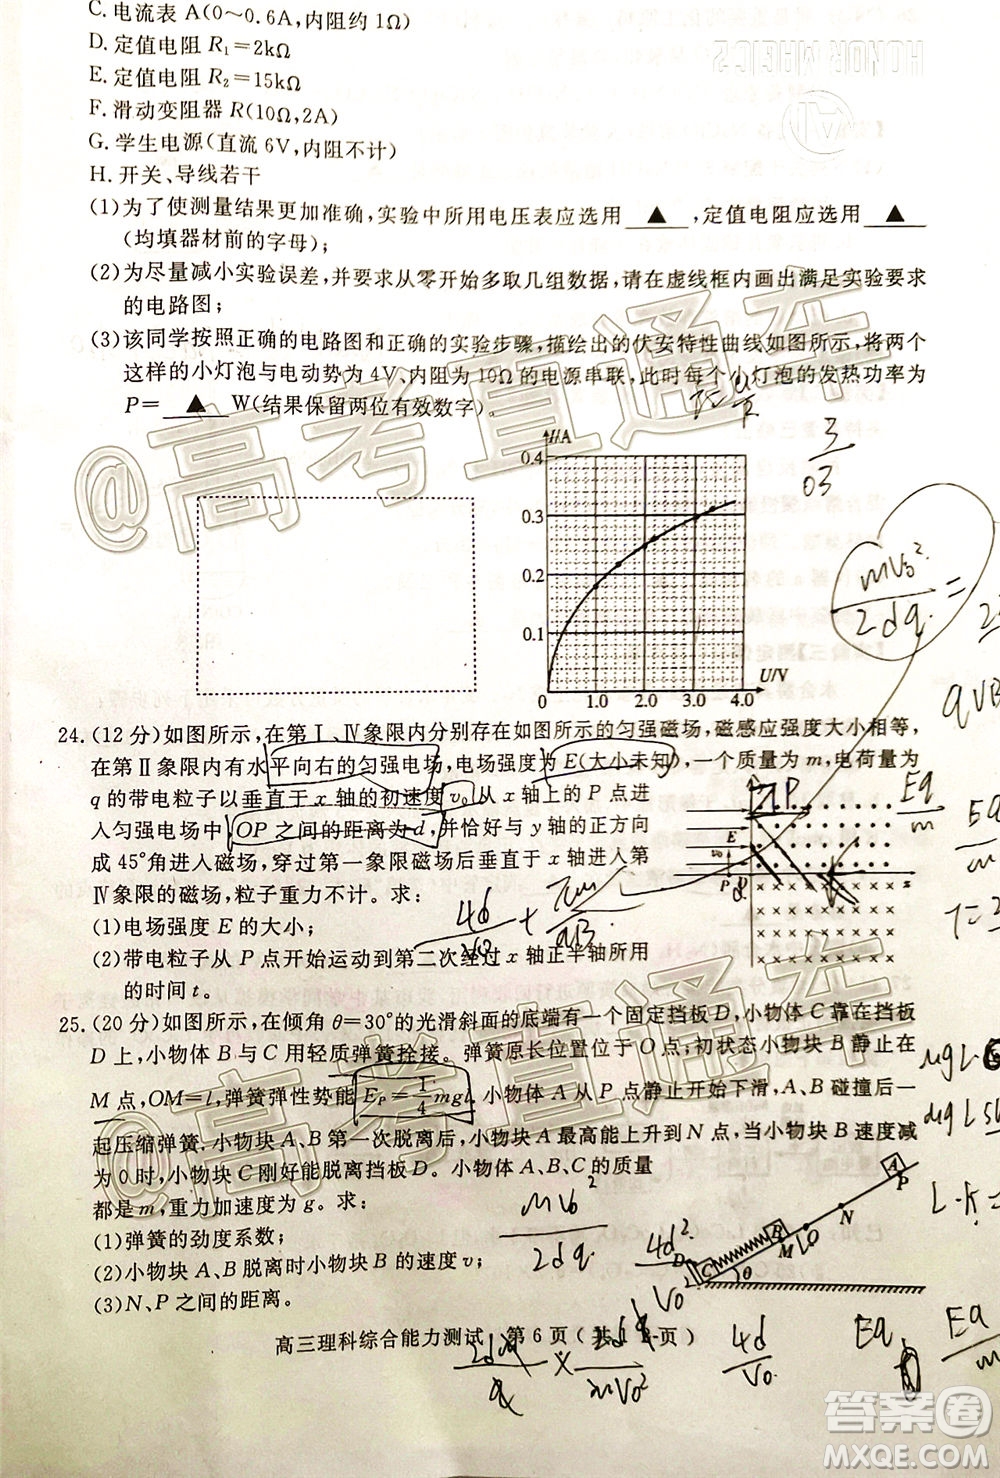 C. 电流表 A(0～0.6A,内阻约 1Ω)
D. 定值电阻 R₁=2kΩ
E. 定值电阻 R₂=15kΩ
F. 滑动变阻器 R(10Ω,2A)
G. 学生电源(直流 6V,内阻不计)
H. 开关、导线若干
(1)为了使测量结果更加准确,实验中所用电压表应选用 ▲ ,定值电阻应选用 ▲
(均填器材前的字母);
(2)为尽量减小实验误差,并要求从零开始多取几组数据,请在虚线框内画出满足实验要求
的电路图;
(3)该同学按照正确的电路图和正确的实验步骤,描绘出的伏安特性曲线如图所示,将两个
这样的小灯泡与电动势为 4V、内阻为 10Ω 的电源串联,此时每个小灯泡的发热功率为
P= ▲ W(结果保留两位有效数字)。
I/A
0.4
0.3
0.2
0.1
0 1.0 2.0 3.0 4.0
U/V
3
03
mv₀²
2dq
=
qVB
24.(12 分)如图所示,在第Ⅰ、Ⅳ象限内分别存在如图所示的匀强磁场,磁感应强度大小相等,
在第Ⅱ象限内有水平向右的匀强电场,电场强度为 E(大小未知),一个质量为 m,电荷量为
q 的带电粒子以垂直于 x 轴的初速度 v₀ 从 x 轴上的 P 点进
入匀强电场中,OP 之间的距离为 d,并恰好与 y 轴的正方向
成 45°角进入磁场,穿过第一象限磁场后垂直于 x 轴进入第
Ⅳ象限的磁场,粒子重力不计。求:
(1)电场强度 E 的大小;
(2)带电粒子从 P 点开始运动到第二次经过 x 轴正半轴所用
的时间 t。
E
v₀
P
x
Eq
m
4d
V0
+
πm
qB
25.(20 分)如图所示,在倾角 θ=30°的光滑斜面的底端有一个固定挡板 D,小物体 C 靠在挡板
D 上,小物体 B 与 C 用轻质弹簧拴接。弹簧原长位置位于 O 点;初状态小物块 B 静止在
M 点,OM=l,弹簧弹性势能 Eₚ=1/4mgl。小物体 A 从 P 点静止开始下滑,A、B 碰撞后一
起压缩弹簧,小物块 A、B 第一次脱离后,小物块 A 最高能上升到 N 点,当 B 速度减
为 0 时,小物块 C 刚好能脱离挡板 D。小物体 A、B、C 的质量
都是 m,重力加速度为 g。求:
(1)弹簧的劲度系数;
(2)小物块 A、B 脱离时小物块 B 的速度 v;
(3)N、P 之间的距离。
A
P
N
B
O
M
D
C
θ
mv₀²
2dq
4d
V0
Eq
m
高三理科综合能力测试 第 6 页
@高考直通车
答案圈
MXQE.COM